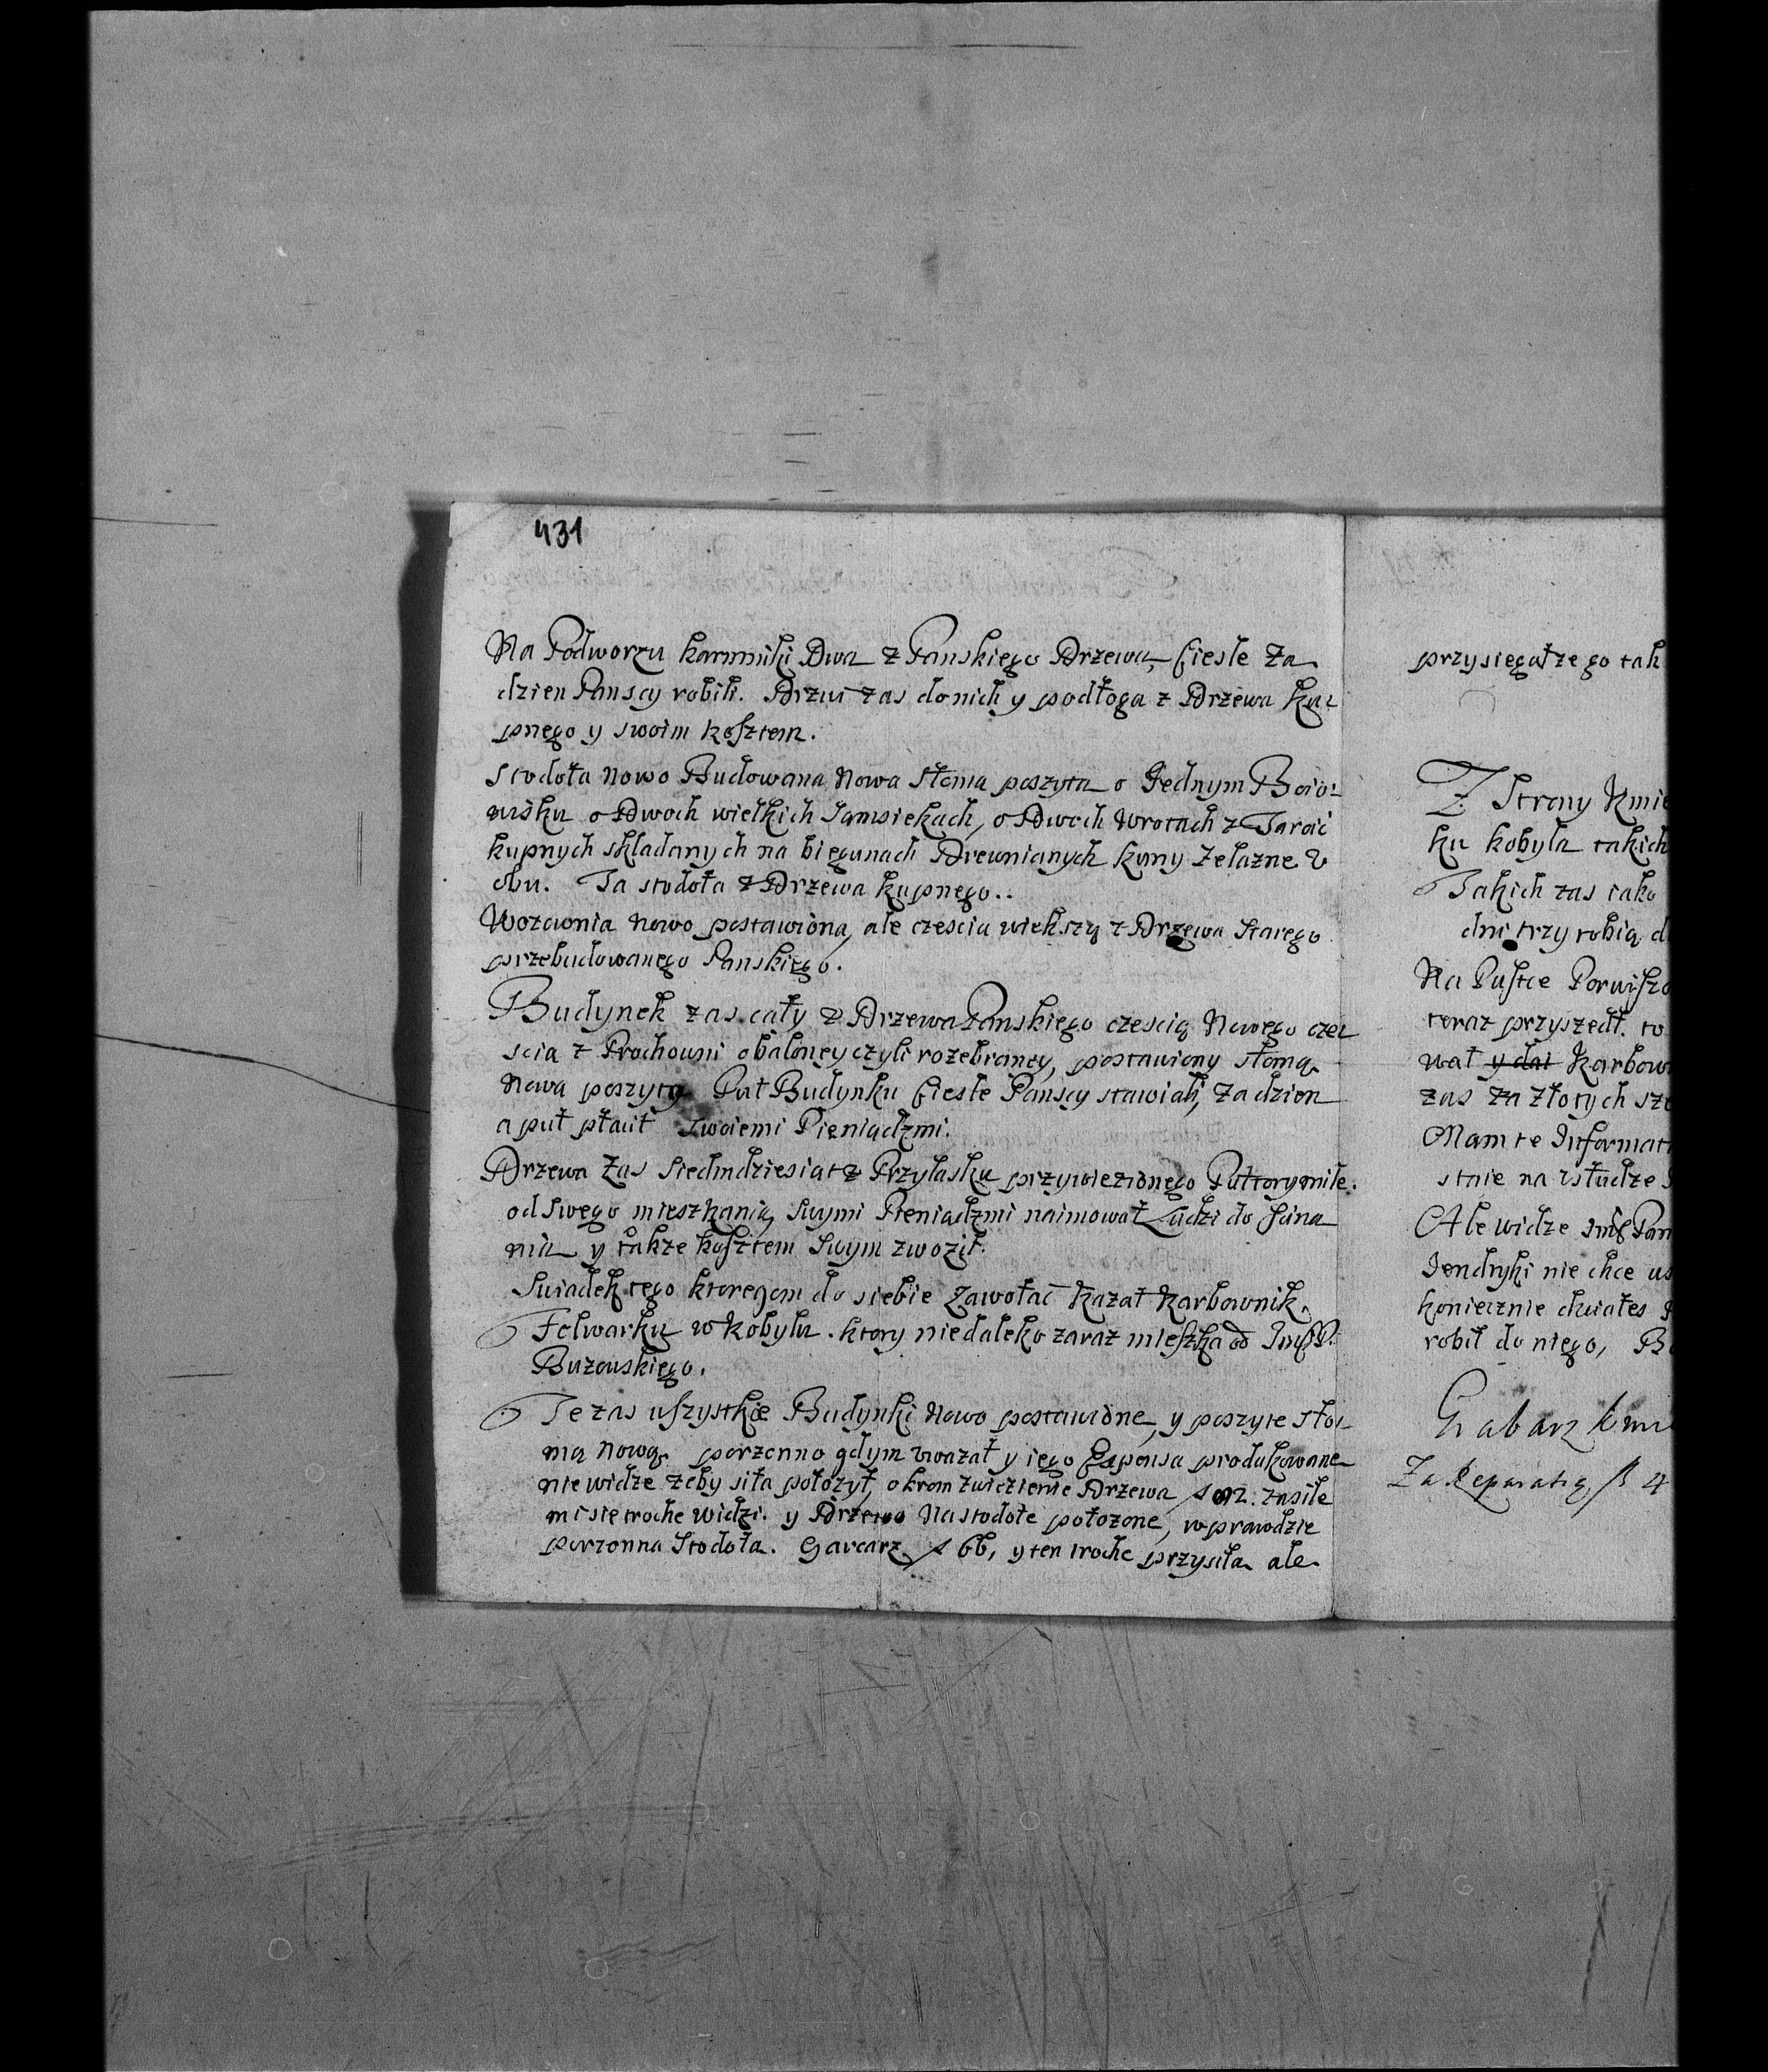 431
Na Podworzu karmniki Dwa z Panskiego Drzewa, Ciesle za
dzien Panscy robili. Drzwi zas do nich y podłoga z Drzewa ku-
pnego y swoim kosztem.
Stodoła nowo Budowana Nowa słoma poszyta o Jednym Boio-
wisku o Dwoch wielkich Samsiekach, o Dwoch Wrotach z Tarcic
kupnych składanych na biegunach Drewnianych kuny zelazne v
obu. Ta stodoła z Drzewa kupnego..
Wozownia nowo postawiona, ale czescia wiekszą z Drzewa Starego
przebudowanego Panskiego.
Budynek zas cały z Drzewa Panskiego czescią Nowego cze-
scia z Prochowni obaloney czyli rozebraney, postawiony słomą
Nową poszyty. Puł Budynku Ciesle Panscy stawiali, za dzien
a puł płacił swoiemi Pieniądzmi.
Drzewa zas siedmdziesiat z Przylasku przywiezionego Pułtory mile
od swego mieszkania, swymi Pieniadzmi naimował Ludzi do scina
nia y takze kosztem swym zwoził.
Swiadek tego ktoregom do siebie zawołać kazał karbownik
Folwarku w Kobylu. ktory niedaleko zaraz mieszka od
Buzowskiego.
Te zas wszystkie Budynki Nowo postawione, y poszyte sło-
mą nową porzonno gdym vwazał y iego Expensa produkowane
nie widze zeby siła połozył, okrom zwiezienie Drzewa zasile
mi sie troche widzi. y Drzewo Na stodołe połozone, wprawdzie
porzonna Stodoła. Garcarz 66, y ten troche przysiła ale
przysiegał ze go tak
Z Strony Kmie
ku kobyla takich
Takich zas iako
dni trzy robią d
Na Pustce
teraz przyszedł. to
wał y dał Karbow
zas za złotych sze
Mam te Informat
Ale widze Pan
Jendryki nie chce us
koniecznie
robił do niego, B
Grabarz kmi
Za Reparatią 4